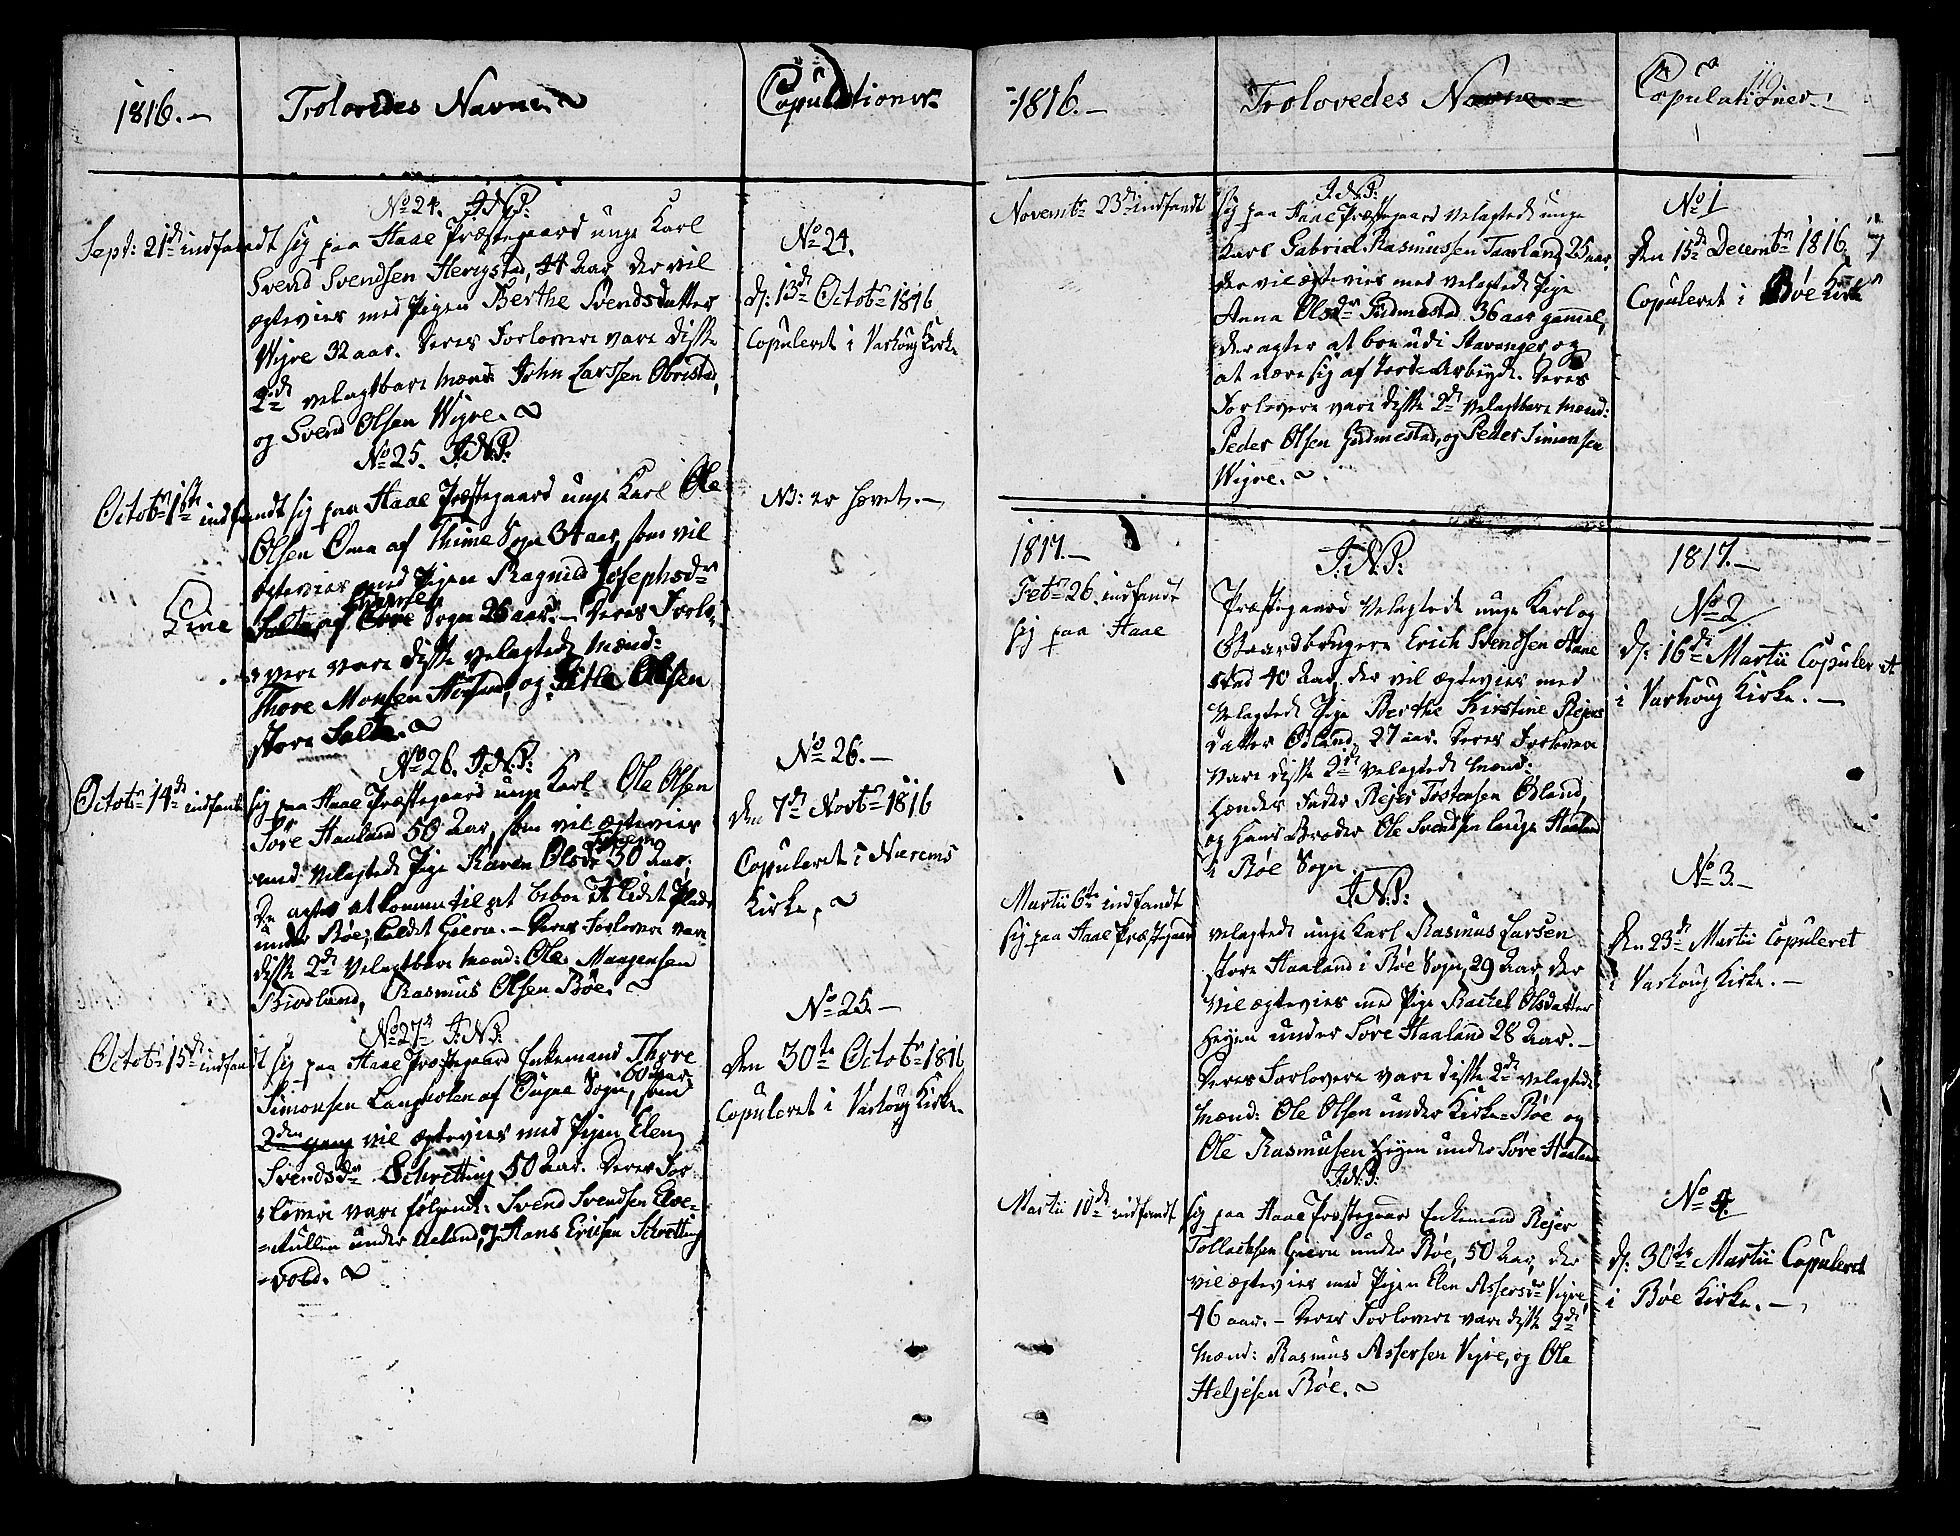 1816.
Trolovedes Navne.
Copulationer
No 24. I.N.J:
Sept: 21de indfandt sig paa Haae Præstegaard unge Karl
Svend Svendsen Herigstad, 44 Aar, der vil
ægtevies med Pigen Berthe Svendsdatter
Wigre 32 aar. Deres Forlovere vare disse
2de velagtbare Mænd John Larssen Obrestad,
og Svend Olsen Wigre.
No 24.
d: 13de Octobr 1816
Copuleret i Varhoug Kirke
No 25. I.N.J:
Octobr 1ste indfandt sig paa Haae Præstegaard unge Karl Ole
Olsen Oma af Thime Sogn 34 aar, som vil
ægtevies med Pigen Ragnild Josephsdr
Line
af Sogn 26 aar. Deres Forlo-
vere vare disse velagtede Mænd:
Thore Monsen og Olsen
store Salte.
NB: er hævet.
No 26. I.N.J:
Octobr 14de indfandt sig paa Haae Præstegaard unge Karl Ole Olsen
Søre Haaland 50 Aar, som vil ægtevies
med velagtede Pige Karen Olsdr 30 Aar.
De agter at komme til at beboe et lidet Plads
under Bøe, kaldet Gieru. Deres Forlovere vare
disse 2de velagtbare Mænd: Ole Maagensen
Biodland, Rasmus Olsen Bøe.
No 26.
Den 7de Novbr 1816
Copuleret i Nærems
Kirke.
No 27 I.N.J:
Octobr 15de indfandt sig paa Haae Præstegaard Enkemand Thore
60 aar
Simonsen Langholen af Ougne Sogn, som
2den gang vil ægtevies med Pigen Elen
Svendsdr Schretting 50 Aar. Deres For-
lovere vare følgende: Svend Svendsen
under Aeland, og Hans Ericsen Schretting
vold.
No 25.
Den 30te Octobr 1816
Copuleret i Varhoug Kirke.
1816.
Trolovedes Navne
Copulationer
119
I.N.J:
Novembr 23de indfandt sig paa Haae Præstegaard velagtede unge
Karl Gabriel Rasmussen Taarland, 25 aar,
der vil ægtevies med velagtede Pige
Anna Olsdr Gudmestad 36 aar gammel,
der agter at boe udi Stavanger, og
at nære sig af Jord-Arbeyde. Deres
Forlovere vare disse 2de velagtbare Mænd:
Peder Olsen Gudmestad, og Peder Simonsen
Wigre.
No 1
Den 15de Decembr 1816
Copuleret i Bøe Kirke
1817.
I.N.J:
1817.
Febr 26. indfandt
sig paa Haae
Præstegaard velagtede unge Karl og
Gaardbruger Erich Svendsen Haae
stad 40 Aar, der vil ægtevies med
velagtede Pige Berthe Kirstine Rejers
datter Ødland, 27 aar. Deres Forlovere
vare disse 2de velagtede Mænd:
Hendes Fader Rejer Tostensen Ødland,
og hans Broder Ole Svendsen lange Haaland
i Bøe Sogn.
No 2
d: 16de Martii Copuleret
i Varhoug Kirke.
I.N.J:
Martii 6te indfandt
sig paa Haae Præstegaard
velagtede unge Karl Rasmus Larsen
store Haaland i Bøe Sogn, 29 Aar, der
vil ægtevies med Pige Rachel Olsdatter
Heyen under Søre Haaland 28 Aar.
Deres Forlovere vare disse 2de velagtede
Mænd: Ole Olsen under Kirke-Bøe og
Ole Rasmusen Heyen under Søre Haaland
No 3.
Den 23de Martii Copuleret
i Varhoug Kirke.
I.N.J:
Martii 10de indfandt sig paa Haae Præstegaard Enkemand Rejer
Tollachsen Gieru under Bøe, 50 Aar, der
vil ægtevies med Pigen Elen Assersdr Vigre
46 aar. Deres Forlovere vare disse 2de
Mænd: Rasmus Assersen Vigre, og Ole
Heljesen Bøe.
No 4.
d: 30te Martii Copuleret
i Bøe Kirke.